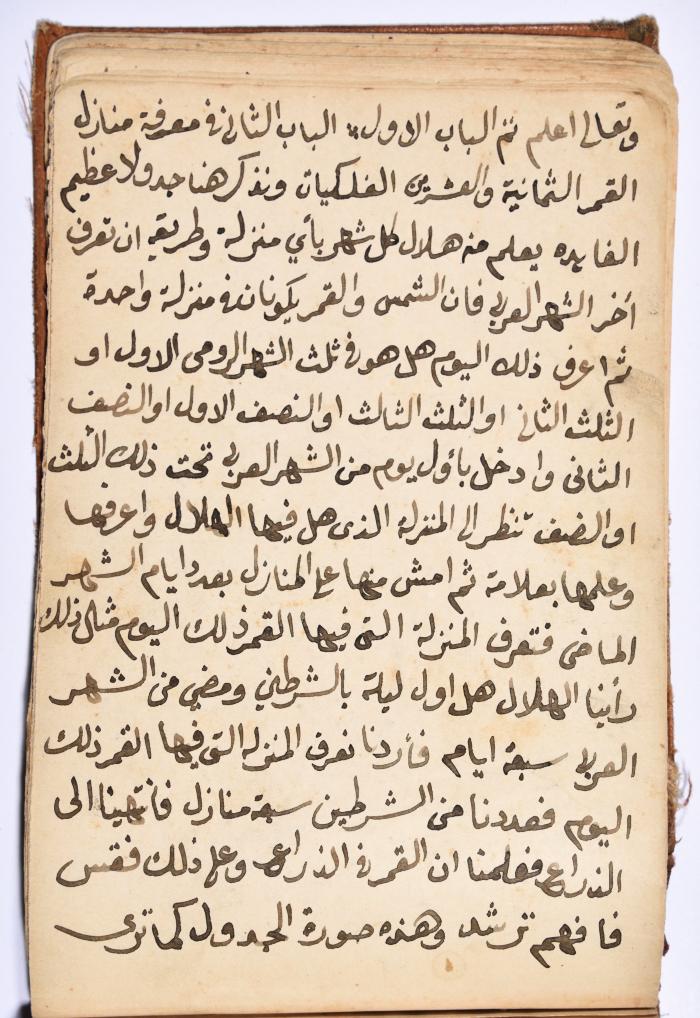 وتعالى اعلم تم الباب الاول ،، الباب الثاني في معرفة منازل
القمر الثمانية والعشرين الفلكيات ونذكر هنا جدولا عظيم
الفايده يعلم منه هلال كل شهر بأي منزلة وطريقه ان تعرف
أخر الشهر العربي فان الشمس والقمر يكونان في منزلة واحدة
ثم اعرف ذلك اليوم هل هو في ثلث الشهر الرومى الاول او
الثلث الثاني او الثلث الثالث او النصف الاول او النصف
الثانى وادخل بأول يوم من الشهر العربي تحت ذلك الثلث
او النصف تنظر الى المنزلة الذى هل فيها الهلال واعرفها
وعلمها بعلامة ثم امش منها على المنازل بعدد ايام الشهر
الماضى فتعرف المنزلة التى فيها القمر ذلك اليوم مثال ذلك
رأينا الهلال هل اول ليلة بالشرطين ومضي من الشهر
العربي سبعة ايام فأردنا نعرف المنزله التى فيها القمر ذلك
اليوم فعددنا من الشرطين سبعة منازل فانتهينا الى
الذراع فعلمنا ان القمر في الذراع وعلى ذلك فقس
فافهم ترشد وهذه صورة الجدول كما ترى